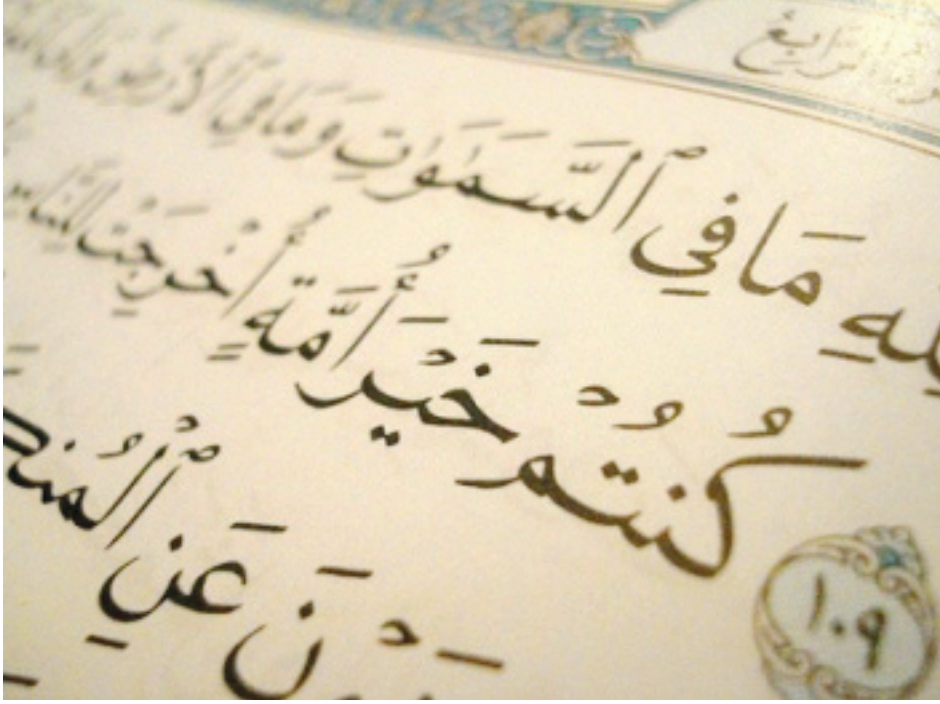 الرابع
لله ما في ٱلسَّمَٰوَٰتِ وَمَا فِي ٱلْأَرْضِ
كُنتُمْ خَيْرَ أُمَّةٍ أُخْرِجَتْ لِلنَّاسِ
١٠٩
عَنِ ٱلْمُنكَ